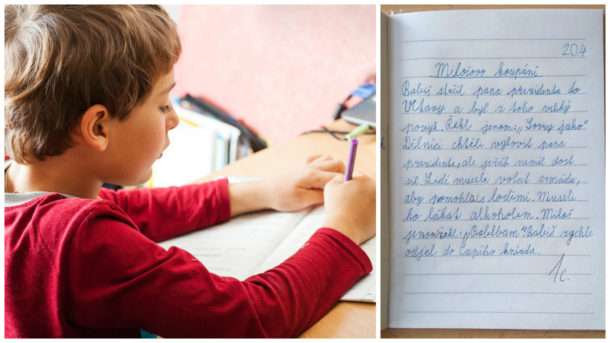 20.4
Milošovo koupání
Babiš strčil pana prezidenta do
Vltavy a byl z toho velský
povyk. Řekl jenom: „Sorry jako“
Dělníci chtěli vylovit pana
prezidenta, ale jeřáb neměl dost
sil. Lidi museli volat armádu,
aby pomohla s loděmi. Museli
ho lákat alkoholem. Miloš
jenom řekl: „Balelbam“. Babiš rychle
odjel do Čapího hnízda.